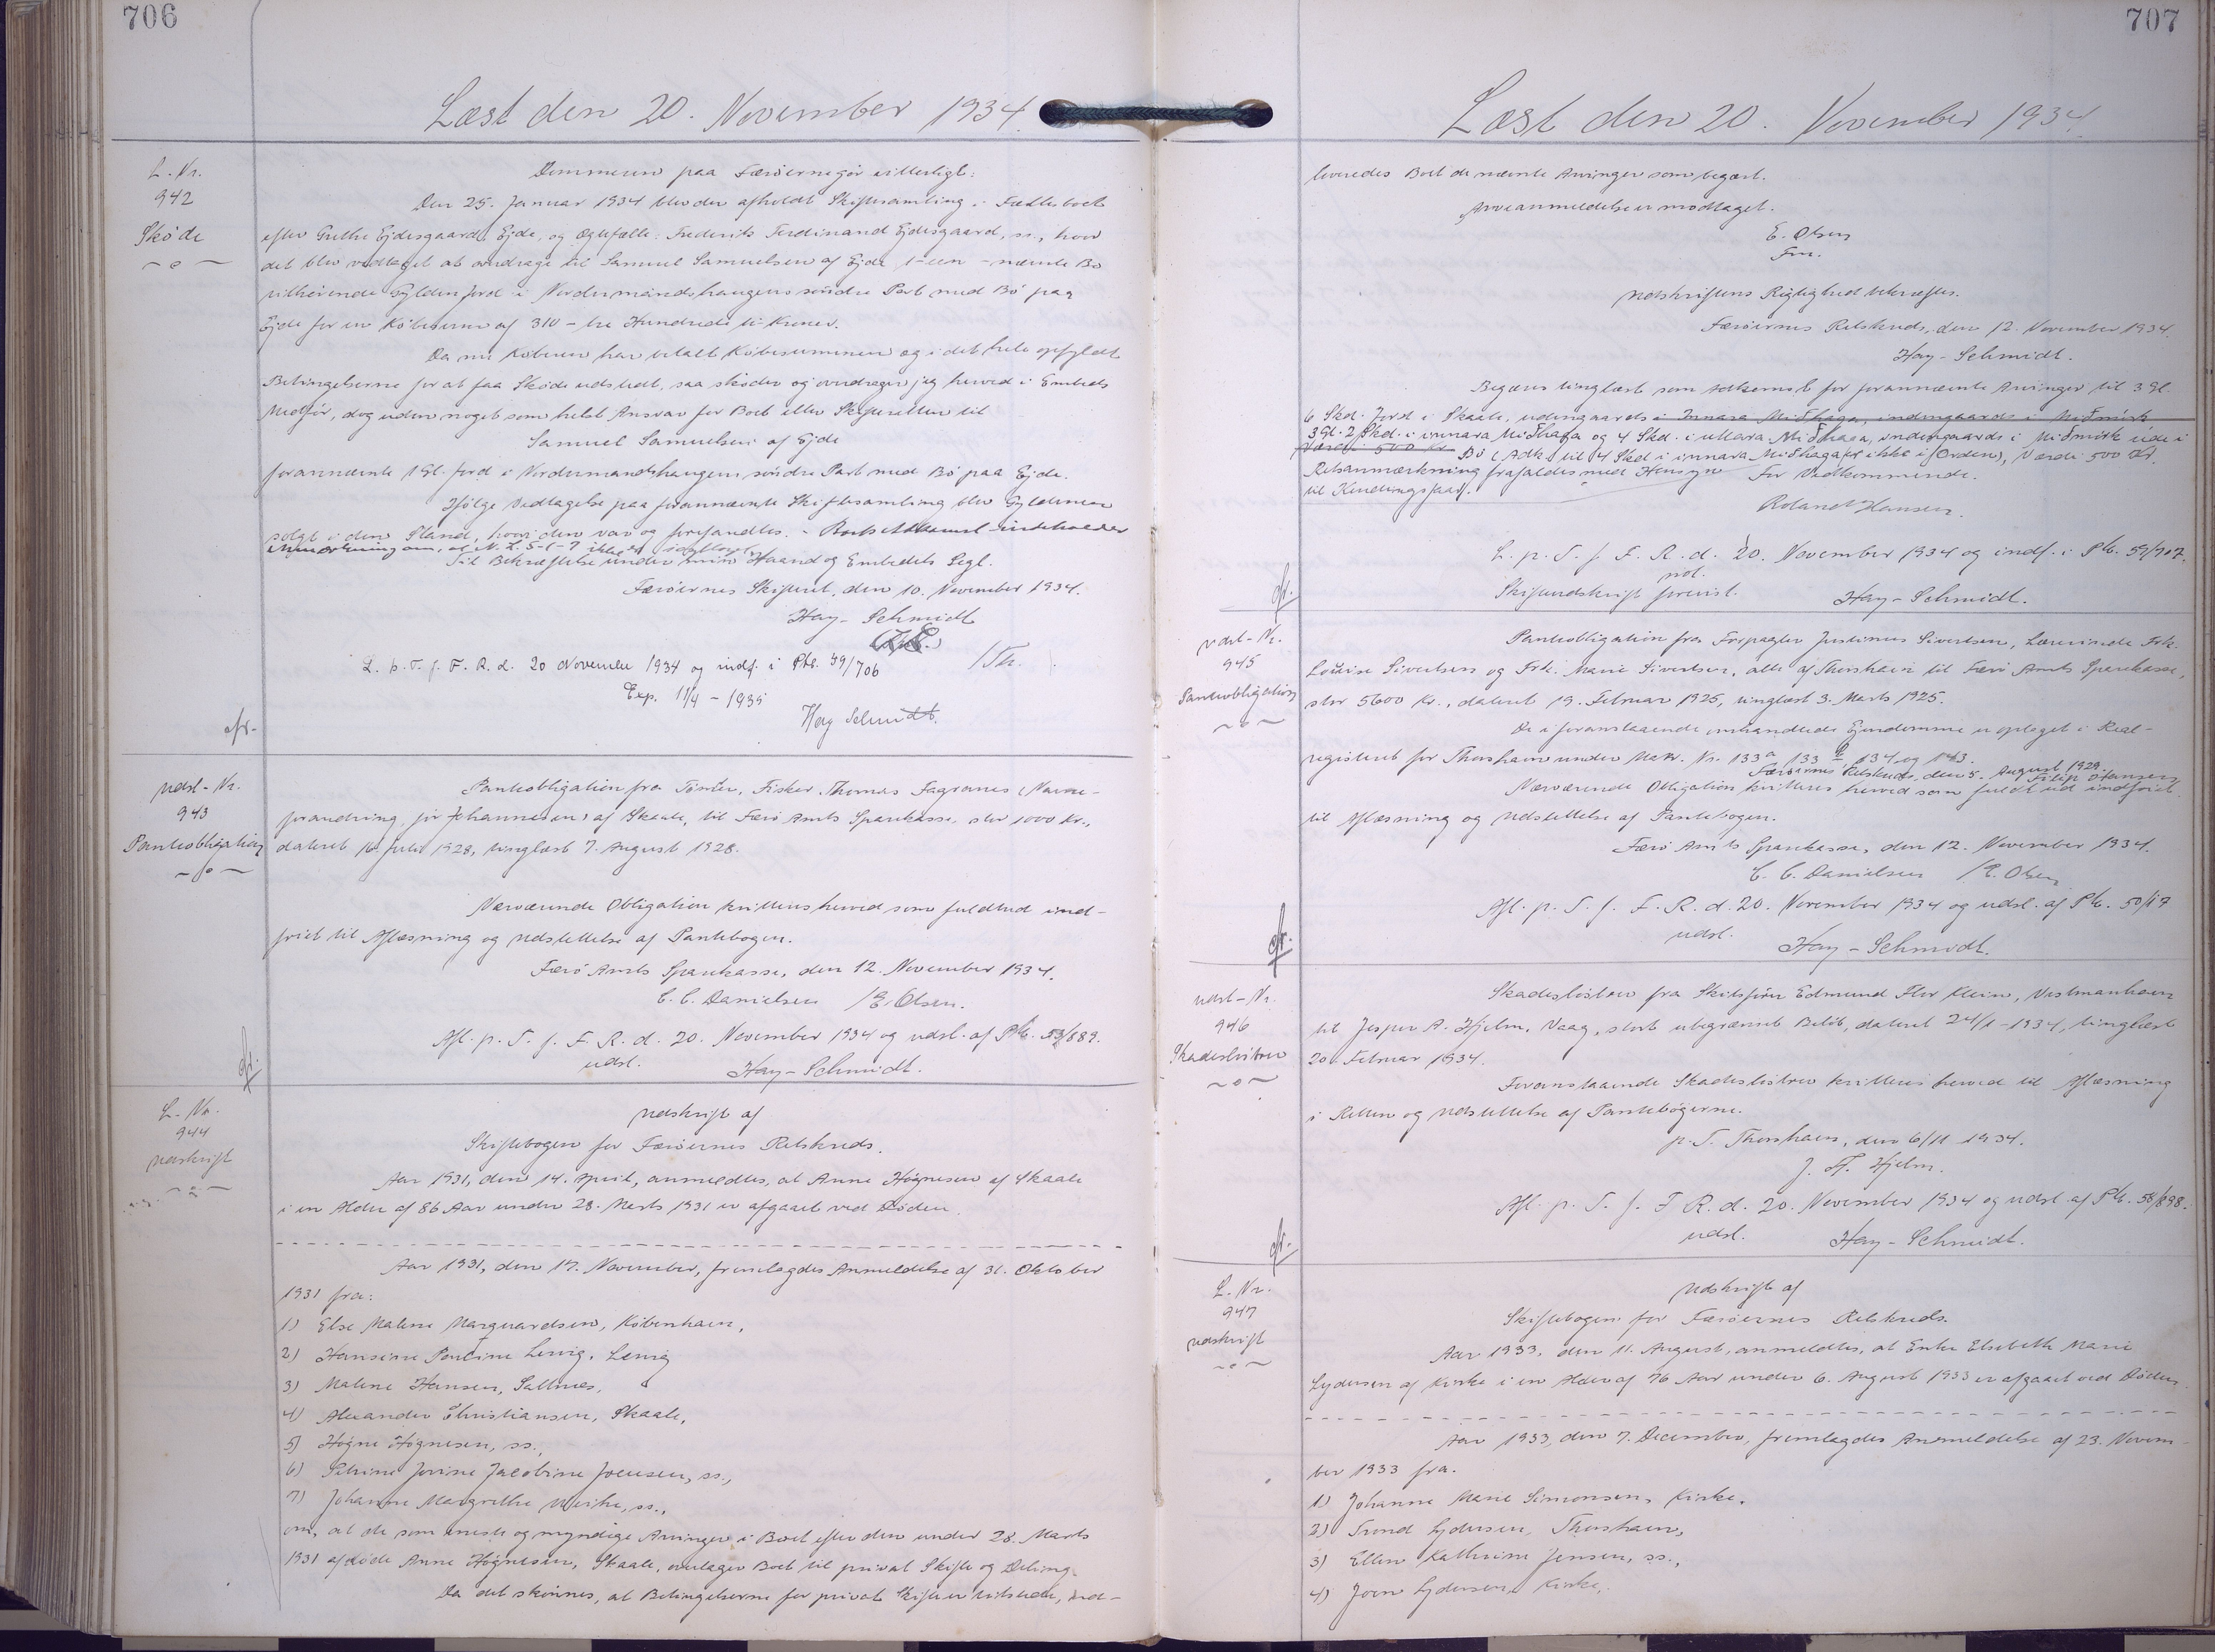 706
Læst den 20. November 1934.
L. Nr.
942
Sköde
Dommeren paa Færöerne gör vitterligt:
Den 25. Januar 1934 blev der afholdt Skiftesamling i Fællesboet
efter Grethe Ejdesgaard, Ejde, og Ægtefælle: Frederik Ferdinand Ejdesgaard, ss., hvor
det blev vedtaget at overdrage til Samuel Samuelsen af Ejde 1-een - nævnte Bo
tilhörende Gylden Jord i Nordurmandshaugens söndre Part med Bö paa
Ejde for en Köbesum af 310 - tre Hundrede ti Kroner.
Da nu Köberen har betalt Köbesummen og i det hele opfyldt
Betingelserne for at faa Sköde udstedt, saa sköder og overdrager jeg herved i Embeds
Medför, dog uden noget som helst Ansvar for Boet eller Skifteretten til
Samuel Samuelsen af Ejde
forannævnte 1 Gl. Jord i Nordurmandshaugens söndre Part med Bö paa Ejde.
Ifölge Vedtagelse paa forannævnte Skiftesamling blev Gyldenen
solgt i den Stand, hvori den var og forefandtes. - Boets Adkomst indeholder
Anmærkning om, at N. L. 5-1-7 ikke er iagttaget.
Til Bekræftelse under min Haand og Embedets Segl.
Færöernes Skifteret, den 10. November 1934.
Hay-Schmidt
L. p. T. f. F. R. d. 20 November 1934 og indf. i Ptb. 59/706
Exp. 11/4 - 1935
Hay Schmidt.
cfr.
Udsl-Nr.
943
Pantobligation
Pantobligation fra Tömrer, Fisker Thomas Fagranes (Navne-
forandring för Johannesen) af Skaale, til Færö Amts Sparekasse, stor 1000 Kr.,
dateret 16 Juli 1928, tinglæst 7. August 1928.
Nærværende Obligation kvitteres herved som fuldtud ind-
friet til Aflæsning og Udslettelse af Pantebogen.
Færö Amts Sparekasse, den 12. November 1934.
C. C. Danielsen /E. Olsen.
Afl. p. T. f. F. R. d. 20. November 1934 og udsl. af Ptb. 53/889.
udsl. Hay-Schmidt.
cfr.
L. Nr.
944
Udskrift
Udskrift af
Skiftebogen for Færöernes Retskreds.
Aar 1931, den 14. April, anmeldtes, at Anne Högnesen af Skaale
i en Alder af 86 Aar under 28. Marts 1931 er afgaaet ved Döden.
Aar 1931, den 17. November, fremlagdes Anmeldelse af 31. Oktober
1931 fra:
1) Else Malene Marquardsen, Köbenhavn,
2) Hansine Pouline Lervig, Lervig
3) Malene Hansen, Saltnes,
4) Alexander Christiansen, Skaale,
5) Högne Högnesen, ss.,
6) Jovine Jacobine Joensen, ss.,
7) Johanne Margrethe ss.,
om, at de som eneste og myndige Arvinger i Boet efter den under 28. Marts
1931 afdöde Anne Högnesen, Skaale, overtager Boet til privat Skifte og Deling.
Da det skönnes, at Betingelserne for privat Skifte er tilstede, ud-
707
Læst den 20. November 1934.
leveredes Boet de nævnte Arvinger som begært.
Arveanmeldelse er modtaget.
E. Olsen
Fm.
Udskriftens Rigtighed bekræftes.
Færöernes Retskreds, den 12. November 1934.
Hay-Schmidt.
Begæres tinglæst som Adkomst for forannævnte Arvinger til 3 Gl.
6 Skd. Jord i Skaale, udengaards i Innara Miðhaga, indengaards i Miðmörk
3 Gl. 2 Skd. i innara Miðhaga og 4 Skd. i uttara Miðhaga, indengaards i Miðmörk úde i
Værdi 500 Kr. Bö (Adk. til 4 Skd i innara Miðhaga er ikke i Orden), Værdi 500 Kr.
Retsanmærkning frafaldes med Hensyn For Vedkommende.
til Kendingsfaar.
Roland Hansen.
L. p. T. f. F. R. d. 20. November 1934 og indf. i Ptb. 59/707.
not.
Skifteudskrift forevist. Hay-Schmidt.
cfr.
Udsl-Nr.
945
Pantobligation
Pantobligation fra Forpagter Justinus Sivertsen, Lærerinde Frk.
Louise Sivertsen og Frk. Marie Sivertsen, alle af Thorshavn til Færö Amts Sparekasse,
stor 5600 Kr., dateret 19. Februar 1925, tinglæst 3. Marts 1925.
De i foranstaaende omhandlede Ejendomme er optaget i Real-
registeret for Thorshavn under Matr. Nr. 133a, 133b, 134 og 143.
Færöernes Retskreds, den 5. August 1929.
Filip Hansen
Nærværende Obligation kvitteres herved som fuldt ud indfriet
til Aflæsning og Udslettelse af Pantebogen.
Færö Amts Sparekasse, den 12. November 1934.
C. C. Danielsen /E. Olsen
Afl. p. T. f. F. R. d. 20. November 1934 og udsl. af Ptb. 50/17
udsl. Hay-Schmidt.
cfr.
Udsl-Nr.
946
Skadeslösbrev
Skadeslösbrev fra Skibsförer Edmund Flor Klein, Vestmanhavn
til Jesper A. Hjelm, Vaag, stort ubegrænset Belöb, dateret 24/1-1934, tinglæst
20. Februar 1934.
Foranstaaende Skadeslösbrev kvitteres herved til Aflæsning
i Retten og Udslettelse af Pantebögerne.
p. T. Thorshavn, den 6/11 1934.
J. A. Hjelm.
Afl. p. T. f. F R. d. 20. November 1934 og udsl. af Ptb. 58/898.
udsl. Hay-Schmidt.
cfr.
L. Nr.
947
Udskrift
Udskrift af
Skiftebogen for Færöernes Retskreds.
Aar 1933, den 11. August, anmeldtes, at Enke Elsebeth Marie
Lydersen af Kirke i en Alder af 76 Aar under 6. August 1933 er afgaaet ved Döden.
Aar 1933, den 7. December, fremlagdes Anmeldelse af 23. Novem-
ber 1933 fra.
1) Johanne Marie Simonsen, Kirke.
2) Trond Lydersen, Thorshavn,
3) Ellen Kathrine Jensen, ss.,
4) Joen Lydersen, Kirke,